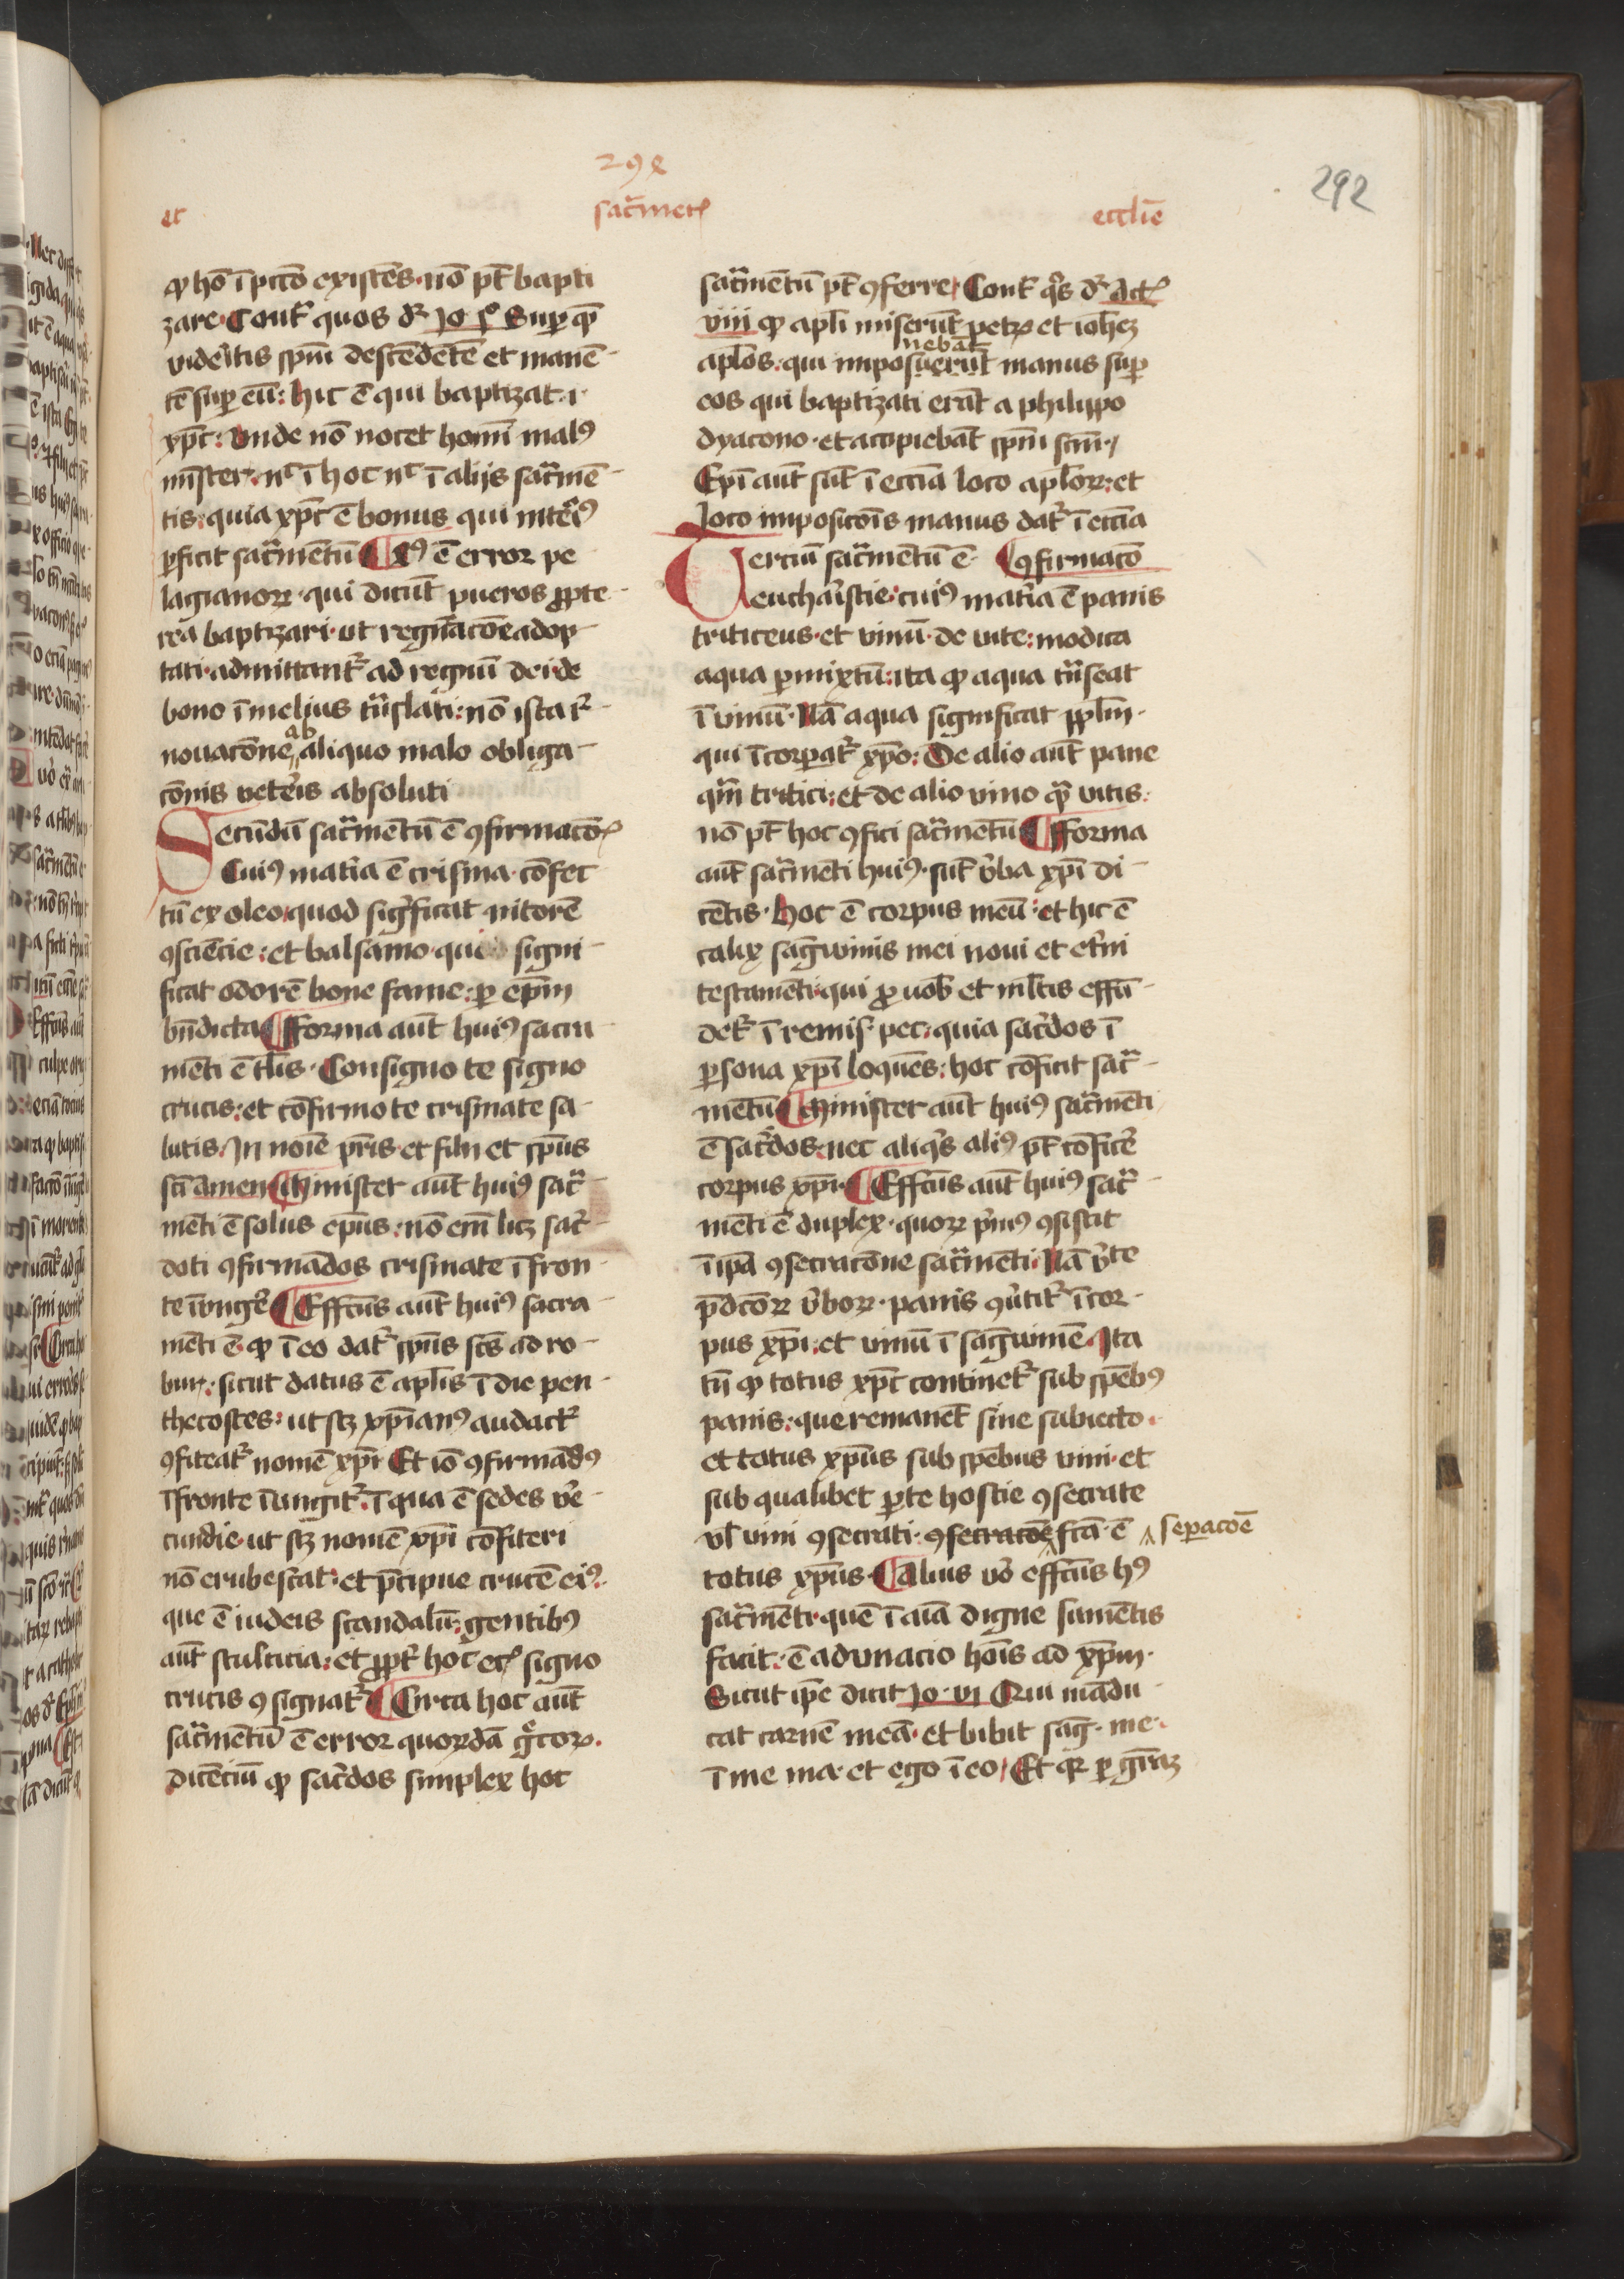 298
292
et sac̃mēt ꝛ eccl̃ie
ꝙ hō ī pctō existēs · nō pt̄ bapti
zare · Cont̄ quos dr̄ Jo pͦ Suꝑ quē
videritis spm̄ descēdētē et manē
tē suꝑ eū : hic ē qui baptizat · i ·
xp̄c : Vnde nō nocet homī malꝰ
mīster · nͨ ī hoc nͨ ī alijs sac̃mē
tis · quia xp̄c ē bonus qui intẽiꝰ
ꝑficit sac̃mentū ¶ Xꝰ ē error pe
lagianoꝝ · qui dicūt pueros ꝓpte
rea baptizari · ut regn̄acōe adop
tati · admittant̃ ad regnū dei · de
bono ī melius trāslati : nō ista r̄
nouacōne ab aliquo malo obliga
cōnis vetẽis absoluti
Secūdū sac̃mentū ē ꝯfirmacō
Cuiꝰ mat̃ia ē crisma · cōfec
tū ex oleo quod sigficat nitorē
ꝯsciēcie : et balsamo · qui signi
ficat odorē bone fame : ꝑ ep̄m
bn̄dicta ¶ Forma aut̄ huiꝰ sacra
mēti ē tl̄is · Consigno te signo
crucis : et cōfirmo te crismate sa
lutis · In noīe pr̄is · et filij et sp̄us
sc̄i amen ¶ Minister aut̄ huiꝰ sac̃
mēti ē solus ep̄us : nō em̄ licꝫ sac̃
doti ꝯfirmādos crismate ī fron
te īungẽ ¶ Effc̄us aut̄ huiꝰ sacra
mēti ē · ꝙ ī eo dat̃ sp̄us sc̄s ad ro
bur : sicut datus ē apl̄is ī die pen
thecostes : ut scꝫ xp̄ianꝰ audact̃
ꝯfiteat̃ nomē xp̄i Et iō ꝯfirmādꝰ
ī fronte īungit̃ · ī qua ē sedes ve̾
cundie · ut scꝫ nomē xp̄i cōfiteri
nō erubescat : et p̄cipue crucē eiꝰ ·
que ē iudeis scandalū : gentibꝰ
aut̄ stulticia : et ꝓpt̃ hoc ec̃ signo
crucis ꝯsignat̃ ¶ Circa hoc aut̄
sac̃mentū ē error quorūdā g̃coꝝ ·
dicenciū ꝙ sac̃dos simplex hoc
sac̃mentū pt̄ ꝯferre · Cont̄ qͦs dr̄ Act̄
viii ꝙ apl̄i miserūt petrū et ioh̄eꝫ
nebāt
apl̄os : qui imposuerūt manus suꝑ
eos qui baptizati erāt a philippo
dyacono · et accipiebāt spm̄ scm̄ ·
Epī aut̄ sūt ī eccīa loco apl̄oꝝ : et
loco imposicōis manus dat̃ ī eccīa
Terciū sac̃mentū ē · ¶ ꝯfirmacō
eucharistie : cuiꝰ mat̃ia ē panis
triticeus · et vinū · de vite : modica
aqua ꝑmixtū : ita ꝙ aqua trāseat
ī vinū · Nā aqua significat ppl̄m ·
qui īcorporat̃ xp̄o : De alio aut̄ pane
qͣm tritici : et de alio vino qͣm vitis :
nō pt̄ hoc ꝯfici sac̃mentū ¶ Forma
aut̄ sac̃menti huiꝰ · sūt v̾ba xp̄i di
cētis · Hoc ē corpus meū : et hic ē
calix sag̃winis mei noui et et̃ni
testamēti · qui ꝓ uob̄ et ml̄tis effū
det̃ ī remis̄ pec · quia sac̃dos ī
ꝑsona xp̄i loquēs : hoc cōficit sac̃
mentū ¶ Minister aut̄ huiꝰ sac̃menti
ē sac̃dos : nec aliqͥs aliꝰ pt̄ cōficẽ
corpus xp̄i · ¶ Effc̄us aut̄ huiꝰ sac̃
mēti ē duplex · quoꝝ p̾mꝰ ꝯsistit
ī ip̄a ꝯsecracōne sac̃mēti : Nā v̾te
p̄dcōꝝ v̾boꝝ · panis ꝯv̾tit̃ ī cor
pus xp̄i : et vinū ī sag̃winē · Ita
tn̄ ꝙ totus xp̄c continet̃ sub spēbꝰ
panis : que remanēt sine subiecto ·
et totus xp̄us sub spēbus vini · et
sub qualibet ꝑte hostie ꝯsecrate
vl̄ vini ꝯsecrati · ꝯsecracōe fc̄a · ē
seperacōe
totus xp̄us · ¶ Alius vͦ effc̄us hꝰ
sac̃mēti · quē ī aīa digne sumētis
facit : ē adunacio hoīs ad xp̄m ·
Sicut ip̄e dicit Jo · vi Qui mādu
cat carnē meā · et bibit sag̃ · me ·
ī me ma · et ego ī eo / Et qꝛ ꝑ gr̄aꝫ